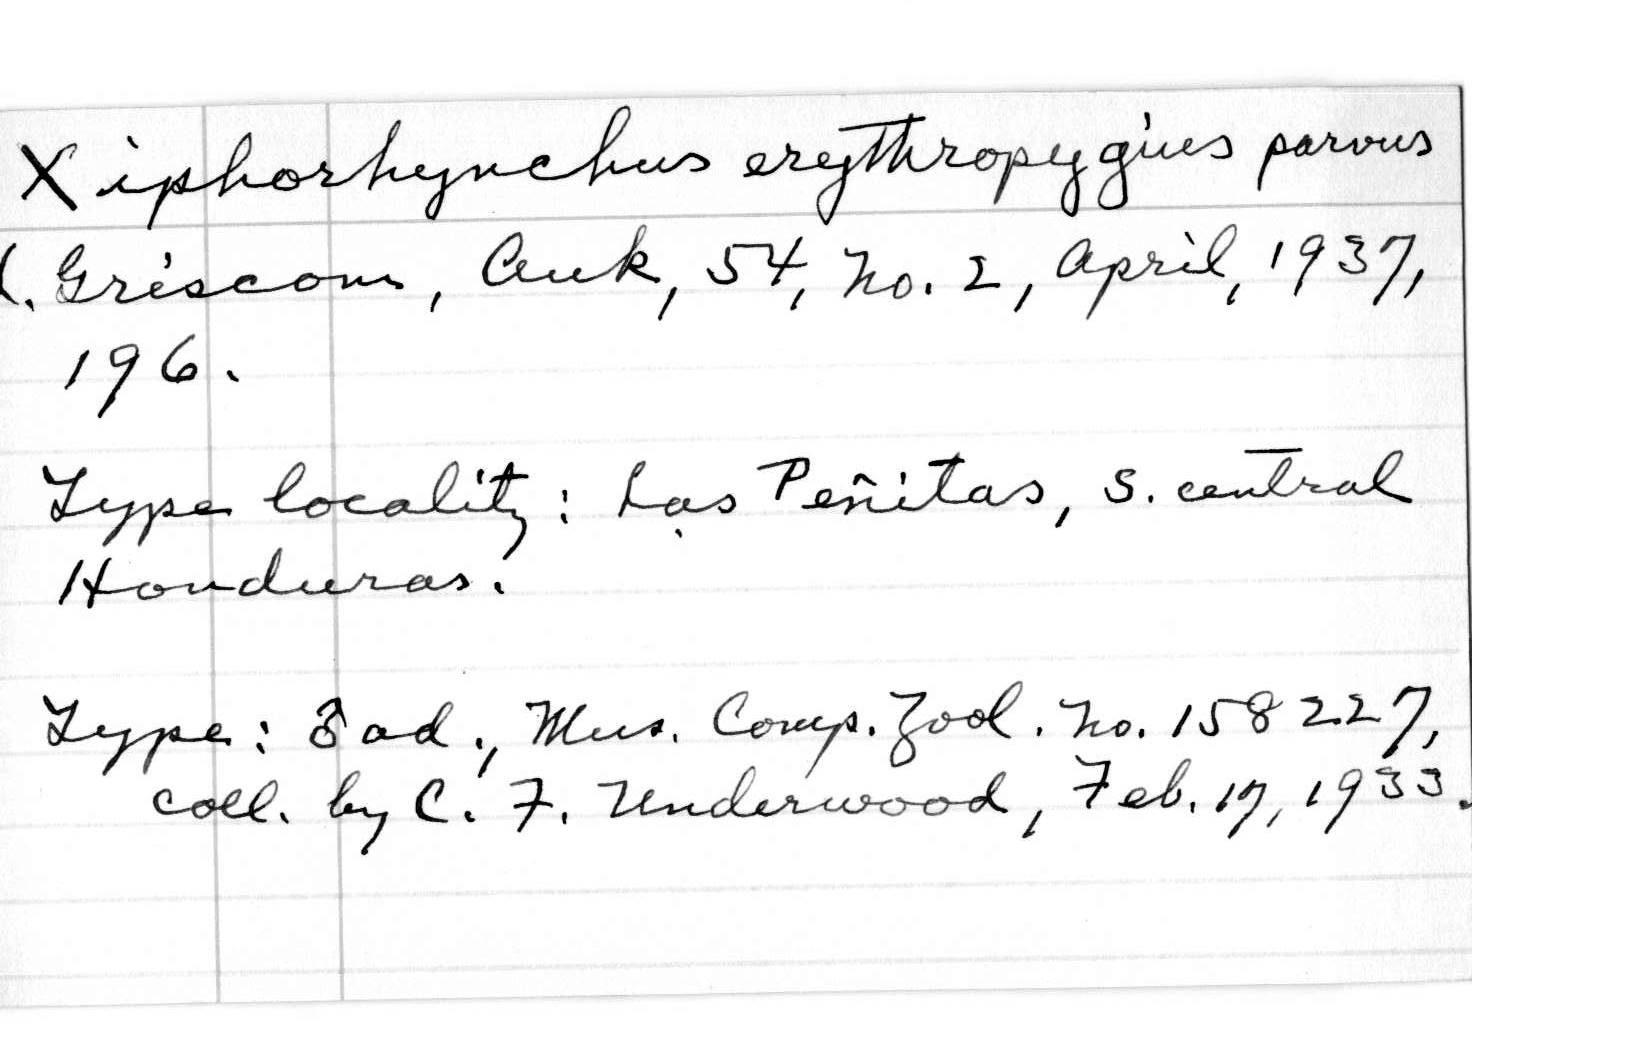 Xiphorhynchus erythropygius parvus
L. Griscom, Auk, 54, No. 2, April, 1937,
196.
Type locality: Las Peñitas, S. central
Honduras.
Type: ♂ ad., Mus. Comp. Zool. No. 158227,
coll. by C. F. Underwood, Feb. 17, 1933.